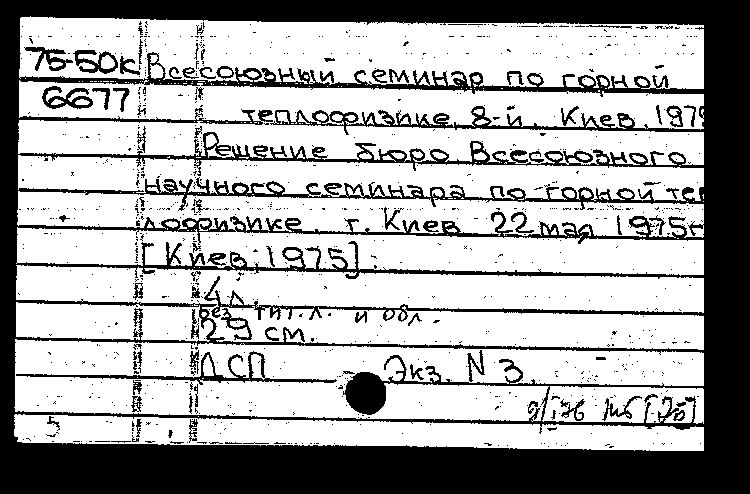 75-50к Всесоюзный семинар по горной
6677 теплофизике, 8-й. Киев. 1975
Решение бюро Всесоюзного
научного семинара по горной теп
лофизике. г. Киев 22 мая 1975г
[Киев, 1975].
4 л.
без тит. л. и обл.
29 см.
ДСП Экз. N 3.
5